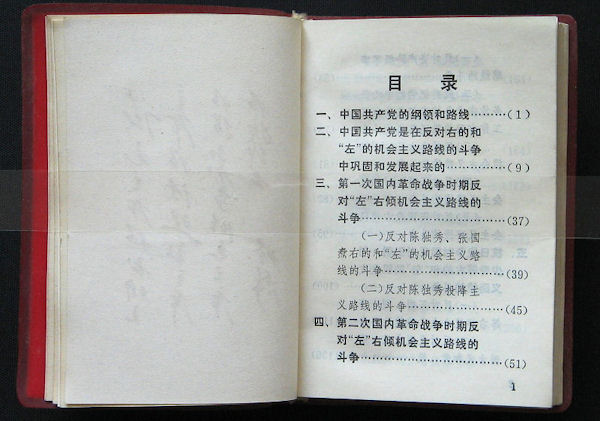 目录
一、中国共产党的纲领和路线………(1)
二、中国共产党是在反对右的和
“左”的机会主义路线的斗争
中巩固和发展起来的…………(9)
三、第一次国内革命战争时期反
对“左”右倾机会主义路线的
斗争……………………………(37)
(一)反对陈独秀、张国
焘右的和“左”的机会主义路
线的斗争………………………(39)
(二)反对陈独秀投降主
义路线的斗争…………………(45)
四、第二次国内革命战争时期反
对“左”右倾机会主义路线的
斗争……………………………(51)
1